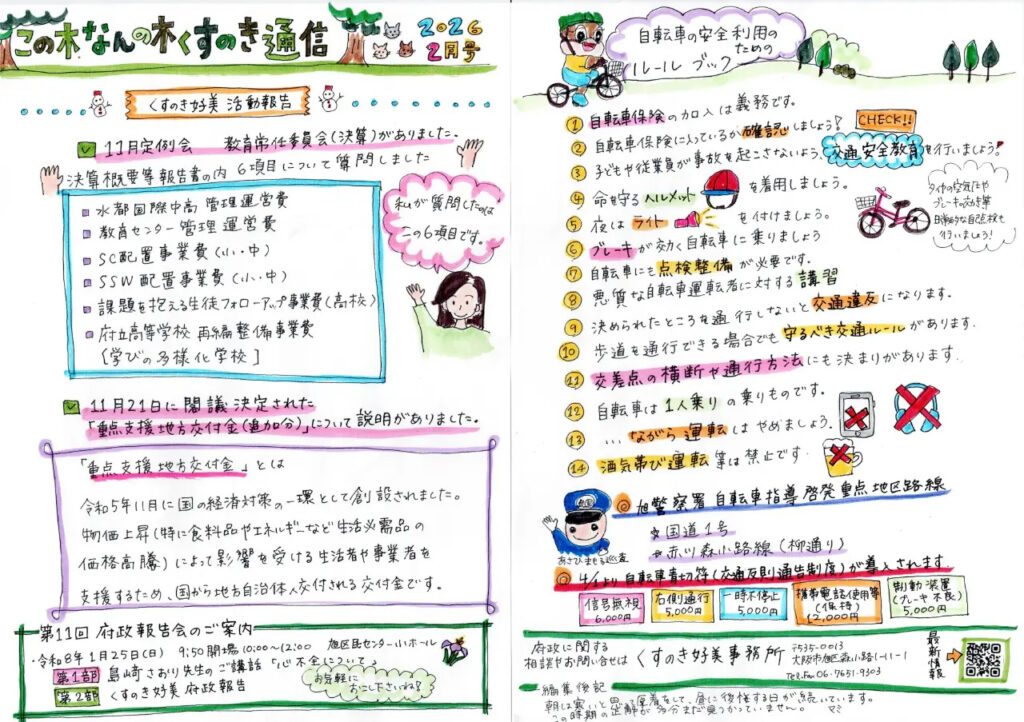 この木なんの木くすのき通信
2026
2月号
くすのき好美 活動報告
11月定例会 教育常任委員会(決算)がありました。
決算概要等報告書の内 6項目について質問しました
水都国際中高 管理運営費
教育センター管理運営費
SC配置事業費(小・中)
SSW配置事業費(小・中)
課題を抱える生徒フォローアップ事業費(高校)
府立高等学校 再編整備事業費
[学びの多様化学校]
私が質問したのは
この6項目です。
11月21日に閣議決定された
「重点支援地方交付金(追加分)」について説明がありました。
「重点支援地方交付金」とは
令和5年11月に国の経済対策の一環として創設されました。
物価上昇(特に食料品やエネルギーなど生活必需品の
価格高騰)によって影響を受ける生活者や事業者を
支援するため、国から地方自治体へ交付される交付金です。
第11回 府政報告会のご案内
・令和8年1月25日(日) 9:50開場 10:00~12:00 旭区民センター小ホール
第1部 島崎さおり先生のご講話「心不全について」
第2部 くすのき好美 府政報告
お気軽に
おこしくださいね
自転車の安全利用の
ための
ルールブック
① 自転車保険の加入は義務です。
② 自転車保険に入っているか確認しましょう! CHECK!!
③ 子どもや従業員が事故を起こさないよう、交通安全教育を行いましょう!
④ 命を守るヘルメットを着用しましょう。
⑤ 夜はライトを付けましょう。
⑥ ブレーキが効く自転車に乗りましょう
⑦ 自転車にも点検整備が必要です。
タイヤの空気圧や
ブレーキの効き等
日常的な自己点検も
行いましょう!
⑧ 悪質な自転車運転者に対する講習
⑨ 決められたところを通行しないと交通違反になります。
⑩ 歩道を通行できる場合でも守るべき交通ルールがあります。
⑪ 交差点の横断や通行方法にも決まりがあります。
⑫ 自転車は1人乗りの乗りものです。
⑬ …ながら運転はやめましょう。
⑭ 酒気帯び運転等は禁止です。
旭警察署 自転車指導啓発重点地区路線
国道1号
赤川森小路線(柳通り)
あさひまもる巡査
4/1より自転車青切符(交通反則通告制度)が導入されます
信号無視
6,000円
右側通行
6,000円
一時不停止
5,000円
携帯電話使用等
(保持)
12,000円
制動装置
(ブレーキ不良)
5,000円
府政に関する
相談やお問い合せは
くすのき好美事務所
〒535-0013
大阪市旭区森小路1-11-1
Tel.Fax 06-7651-9303
最新情報
編集後記
朝は寒いと思って厚着をして、昼に後悔する日が続いています。
この時期の正解が多分まだ見つかっていません。